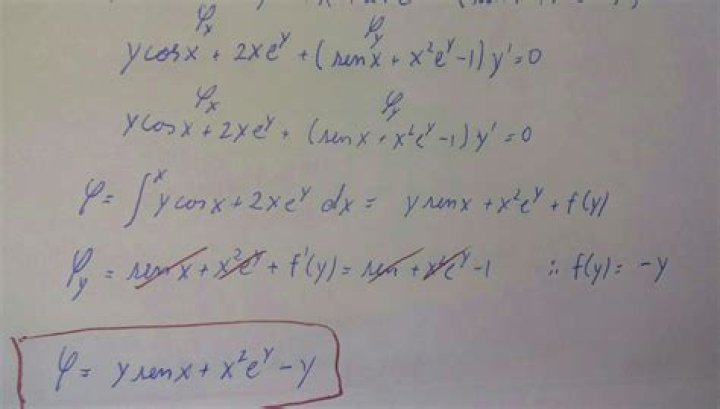 φx φy
y cos x + 2xe^y + (sen x + x²e^y - 1) y' = 0
φx φy
y cos x + 2xe^y + (sen x + x²e^y - 1) y' = 0
φ = ∫^x y cos x + 2xe^y dx = y sen x + x²e^y + f(y)
φy = sen x + x²e^y + f'(y) = sen + x²e^y - 1 ∴ f(y) = -y
φ = y sen x + x²e^y - y